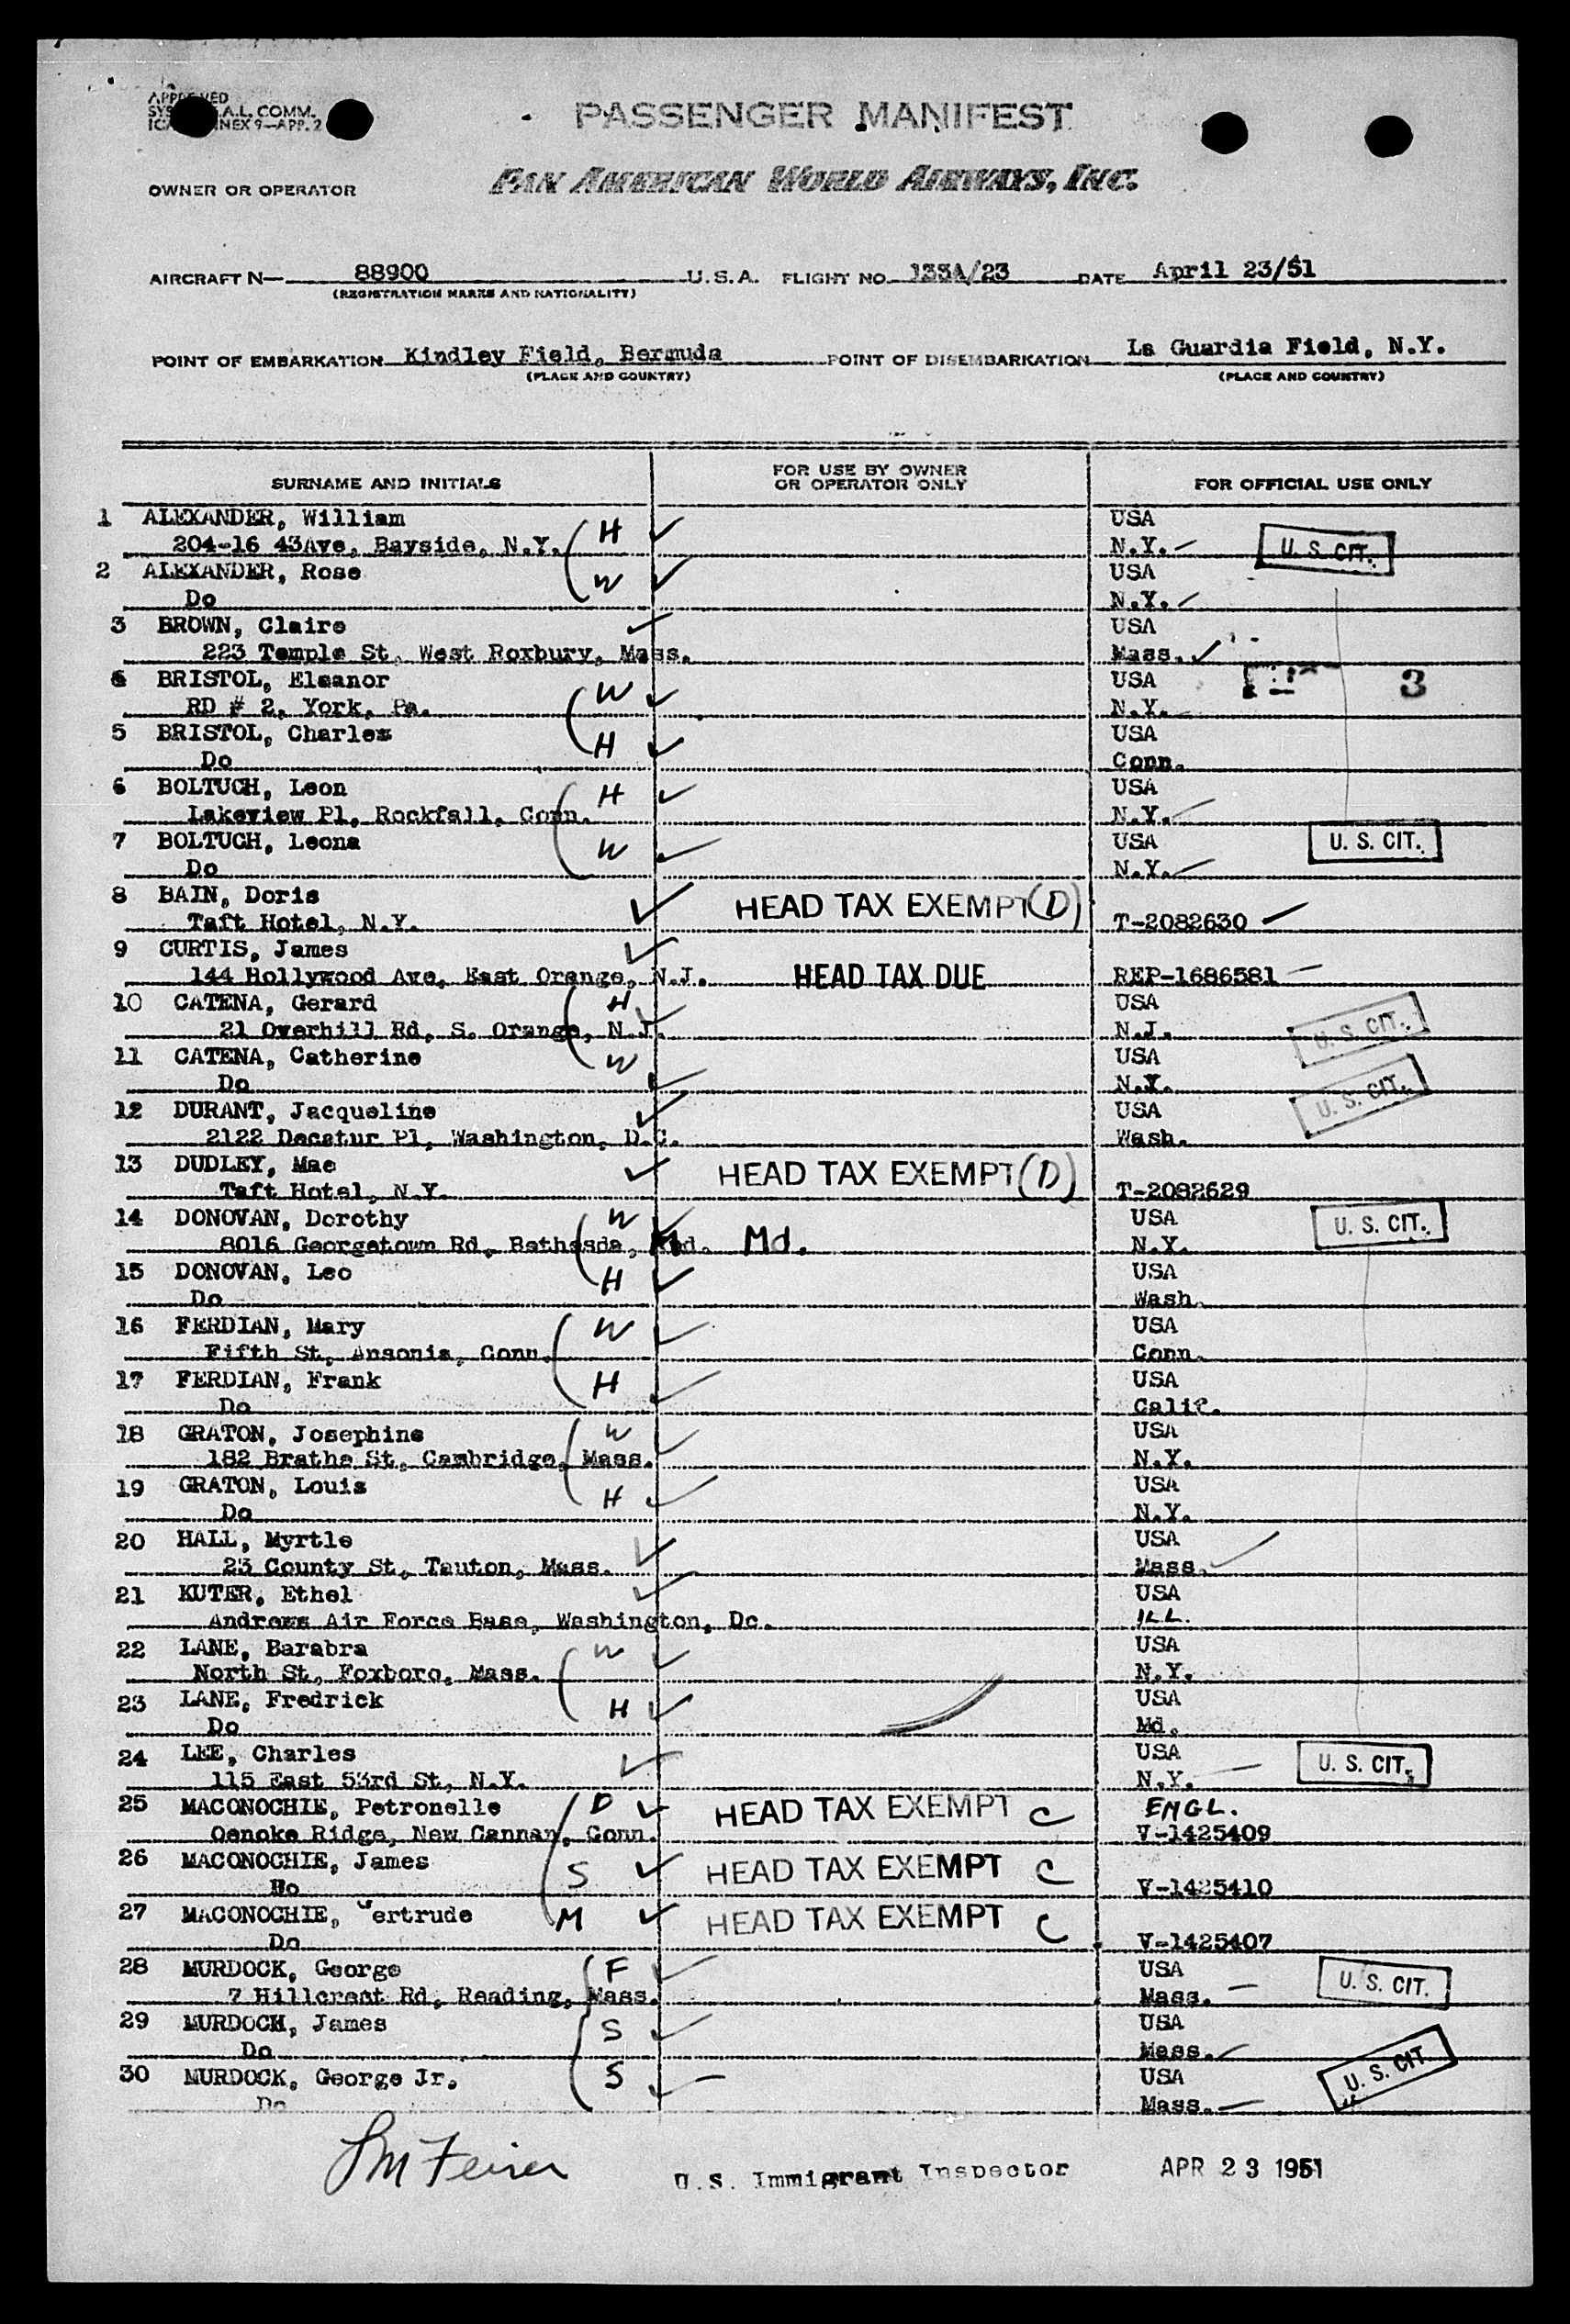 PASSENGER MANIFEST
A.L. COMM.
NEX 9—APP. 2
OWNER OR OPERATOR PAN AMERICAN WORLD AIRWAYS, INC.
AIRCRAFT N— 88900 U.S.A. FLIGHT NO. 133A/23 DATE April 23/51
(REGISTRATION MARKS AND NATIONALITY)
POINT OF EMBARKATION Kindley Field, Bermuda POINT OF DISEMBARKATION La Guardia Field, N.Y.
(PLACE AND COUNTRY) (PLACE AND COUNTRY)
SURNAME AND INITIALS FOR USE BY OWNER OR OPERATOR ONLY FOR OFFICIAL USE ONLY
1 ALEXANDER, William H USA
204-16 43Ave, Bayside, N.Y. N.Y. U. S. CIT.
2 ALEXANDER, Rose W USA
Do N.Y.
3 BROWN, Claire USA
223 Temple St, West Roxbury, Mass. Mass.
4 BRISTOL, Eleanor W USA 3
RD # 2, York, Pa. N.Y.
5 BRISTOL, Charles H USA
Do Conn.
6 BOLTUCH, Leon H USA
Lakeview Pl, Rockfall, Conn. N.Y.
7 BOLTUCH, Leona W USA U. S. CIT.
Do N.Y.
8 BAIN, Doris HEAD TAX EXEMPT (D)
Taft Hotel, N.Y. T-2082630
9 CURTIS, James
144 Hollywood Ave, East Orange, N.J. HEAD TAX DUE REP-1686581
10 CATENA, Gerard H USA
21 Overhill Rd, S. Orange, N.J. N.J. U. S. CIT.
11 CATENA, Catherine W USA
Do N.Y. U. S. CIT.
12 DURANT, Jacqueline USA
2122 Decatur Pl, Washington, D.C. Wash.
13 DUDLEY, Mae HEAD TAX EXEMPT (D)
Taft Hotel, N.Y. T-2082629
14 DONOVAN, Dorothy W USA U. S. CIT.
8016 Georgetown Rd, Bethesda, Md. Md. N.Y.
15 DONOVAN, Leo H USA
Do Wash.
16 FERDIAN, Mary W USA
Fifth St, Ansonia, Conn. Conn.
17 FERDIAN, Frank H USA
Do Calif.
18 GRATON, Josephine W USA
182 Brathe St, Cambridge, Mass. N.Y.
19 GRATON, Louis H USA
Do N.Y.
20 HALL, Myrtle USA
23 County St, Tauton, Mass. Mass.
21 KUTER, Ethel USA
Andrews Air Force Base, Washington, Dc. ILL.
22 LANE, Barabra W USA
North St, Foxboro, Mass. N.Y.
23 LANE, Fredrick H USA
Do Md.
24 LEE, Charles USA U. S. CIT.
115 East 53rd St, N.Y. N.Y.
25 MACONOCHIE, Petronelle D HEAD TAX EXEMPT C ENGL.
Oenoke Ridge, New Cannan, Conn. V-1425409
26 MACONOCHIE, James S HEAD TAX EXEMPT C
Do V-1425410
27 MACONOCHIE, Gertrude M HEAD TAX EXEMPT C
Do V-1425407
28 MURDOCK, George F USA U. S. CIT.
7 Hillcrest Rd, Reading, Mass. Mass.
29 MURDOCK, James S USA
Do Mass.
30 MURDOCK, George Jr. S USA U. S. CIT.
Do Mass.
U.S. Immigrant Inspector APR 23 1951